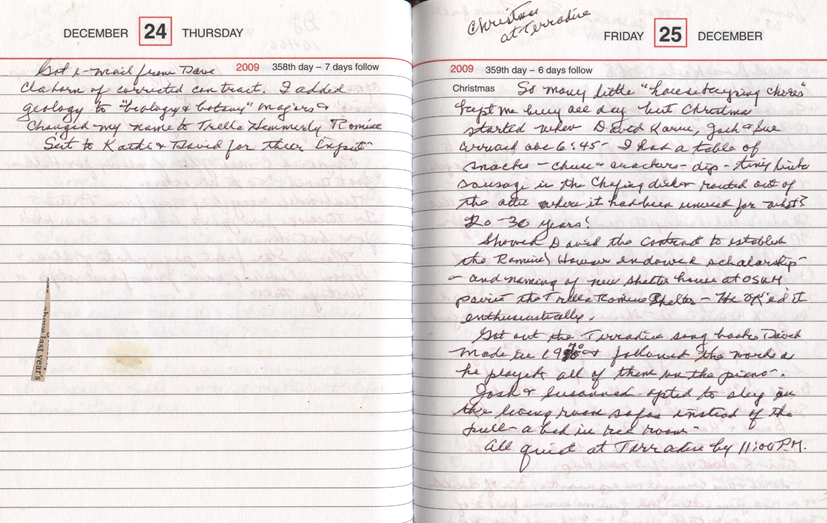 DECEMBER 24 THURSDAY
2009 358th day – 7 days follow
Got e-mail from Dave
Claborn of corrected contract. I added
geology to "biology & botany" majors &
Changed my name to Trella Hemmerly Romine
Sent to Kathi & David for their input
above last year's
Christmas
at Terradise
FRIDAY 25 DECEMBER
2009 359th day – 6 days follow
Christmas So many little "housekeeping chores"
kept me busy all day but Christmas
started when David Karen, Josh & Sue
arrived abt 6:45 - I had a table of
snacks - cheese & crackers - dip - tiny link
sausage in the Chafing dish routed out of
the attic where it had been unused for what?
20-30 years!
Showed David the contract to establish
the Romine/ Howser endowed scholarship -
- and naming of new shelter house at OSUM
the Trella Romine Shelter - He OK'ed it
enthusiastically.
Got out the Terradise song books David
made in & followed the words as
he played all of them on the piano -
Josh & Susanne opted to sleep in
the living room sofas instead of the
pull-a bed in rec room -
All quiet at Terradise by 11:00 P.M.